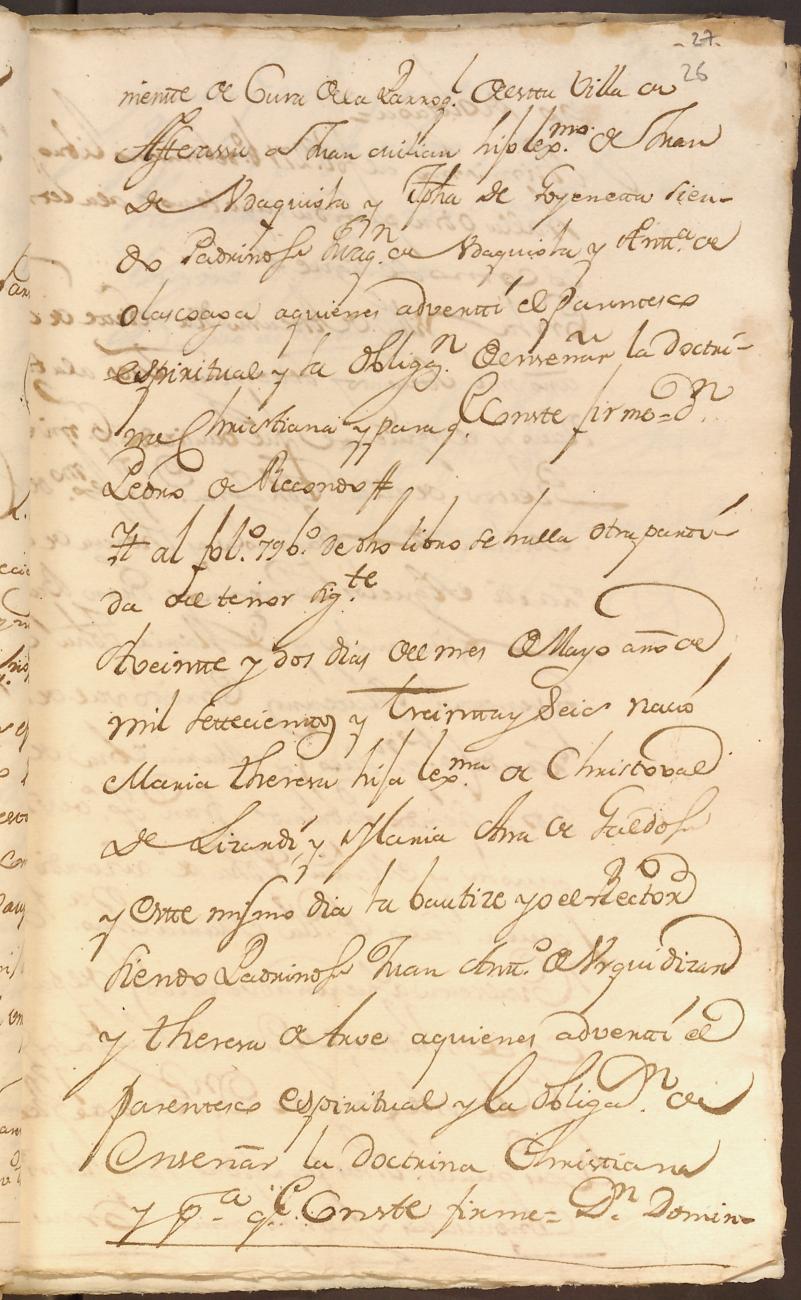 27
26
niente de Cura de la Parroql. de esta Villa de
Asteassu a Juan Julian hijo lexmo. de Juan
de Vdaquiola y Jpha de Goyenetta sien-
do Padrinos Magn. de Vdaquiola y Anta. de
olascoaga aquienes adverti el parentesco
espiritual y la obligon. de enseñar la doctri-
na Christiana y para q. Conste firme = Dn.
Pedro de Recondo #
Yt. al fol.o 79 b.o de dho libro se halla otra parti-
da del tenor sig.te
A veinte y dos dias del mes de Mayo año de
mil settecientos y treinta y Seis nació
Maria theresa hija lexma. de Christoval
de Lizardi y Maria Ana de Galdos
y este mismo dia la bautize yo el Rector
siendo Padrinos Juan Antt.o de Vrquidizar
y theresa de Arve aquienes adverti el
parentesco espiritual y la obligan. de
Enseñar la doctrina Christiana
y pa. qe. Conste firme = Dn. Domin-